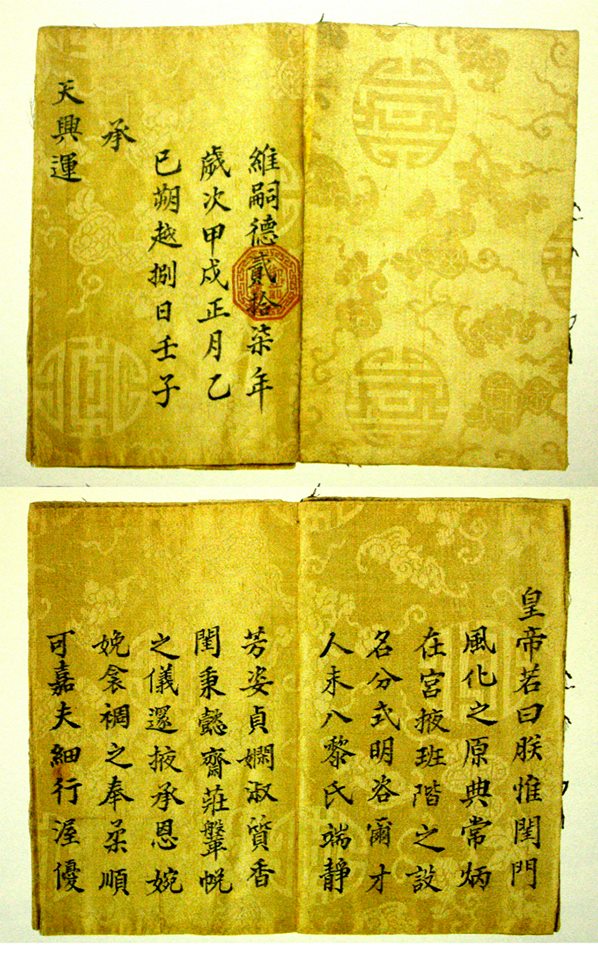 維嗣德貳拾柒年
歲次甲戌正月乙
巳朔越捌日壬子
承
天興運
皇帝若曰朕惟閨門
風化之原典常炳
在宮掖班階之設
名分式明咨爾才
人未入黎氏端靜
芳姿貞嫻淑質香
閨秉懿齋莊鞶帨
之儀選掖承恩婉
娩衾裯之奉柔順
可嘉夫細行渥優